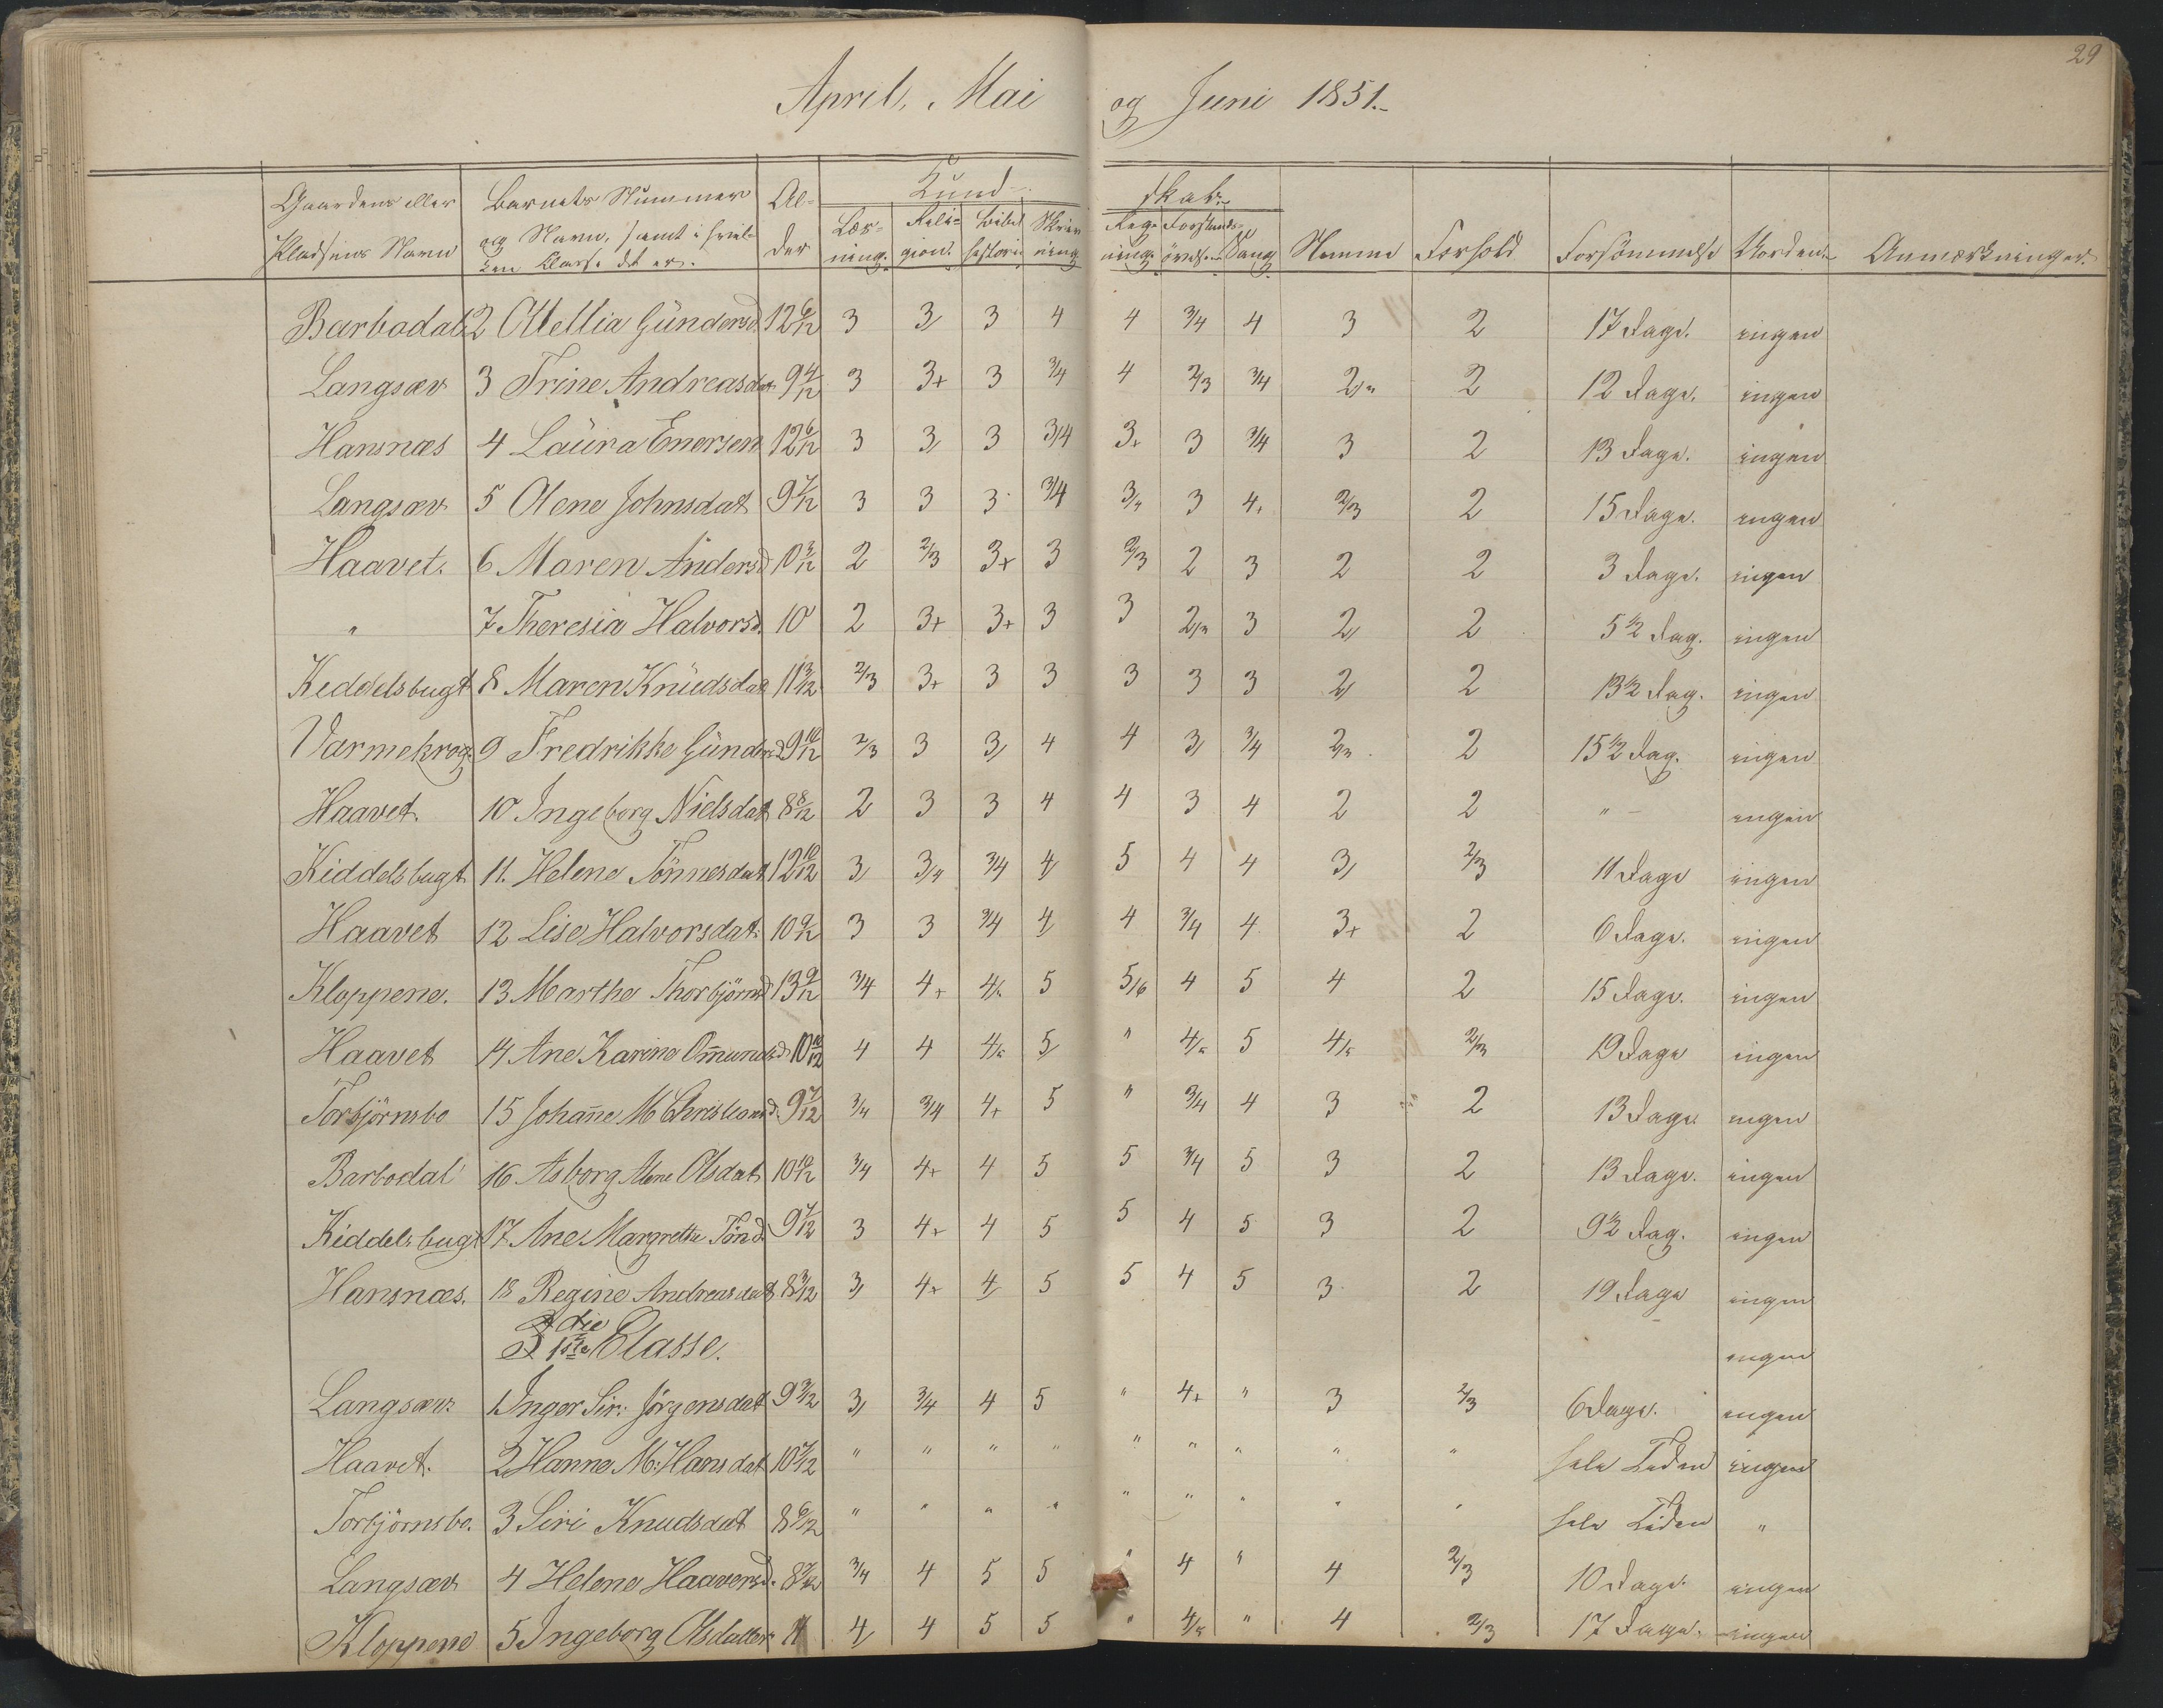 29
April, Mai og Juni 1851.
Gaardens eller Pladsens Navn | Barnets Nummer og Navn, samt i hvilken Classe det er. | Alder | Kundskab: Læsning. | Religion. | Bibelhistorie | Skrivning | Regning. | Forstandsøvelse | Sang | Nemme | Forhold | Forsömmelse | Anmærkninger.
Barbodal 2 Otellia Gündersd. 12 6/12 3 3 3 4 4 3/4 4 3 2 17 Dage. ingen
Langsæv 3 Trine Andreasdat 9 4/12 3 3+ 3 3/4 4 2/3 3/4 2/3 2 12 Dage. ingen
Hansnæs 4 Laüra Enersen 12 6/12 3 3 3 3/4 3+ 3 3/4 3 2 13 Dage. ingen
Langsæv 5 Olene Johnsdat 9 7/12 3 3 3 3/4 3/4 3 4+ 2/3 2 15 Dage. ingen
Haavet. 6 Maren Andersd 10 3/12 2 2/3 3+ 3 2/3 2 3 2 2 3 Dage. ingen
" 7 Theresia Halvorsd. 10 2 3+ 3+ 3 3 2/3 3 2 2 5 1/2 Dag. ingen
Keddelsbugt 8 Maren Knüdsdat 11 3/12 2/3 3+ 3 3 3 3 3 2 2 13 1/2 Dag. ingen
Varmekrog. 9 Fredrikke Günders.d 9 10/12 2/3 3 3 4 4 3 3/4 2/3 2 15 1/2 Dag. ingen
Haavet. 10 Ingeborg Nielsdat 8 8/12 2 3 3 4 4 3 4 2 2 " ingen
Kiddelsbugt 11. Helene Tönnesdat 12 10/12 3 3/4 3/4 4 5 4 4 3 2/3 11 Dage ingen
Haavet 12 Lise Halvorsdat. 10 9/12 3 3 3/4 4 4 3/4 4 3+ 2 6 Dage. ingen
Kloppene. 13 Marthe Thorbjörnsd 13 9/12 3/4 4+ 4/5 5 5/6 4 5 4 2 15 Dage. ingen
Haavet 14 Ane Karine Om̅unds.d. 10 10/12 4 4 4/5 5 " 4/5 5 4/5 2/3 19 Dage ingen
Torbjörnsbo 15 Johan̅e M Christiansd. 9 7/12 3/4 3/4 4+ 5 " 3/4 4 3 2 13 Dage ingen
Barbodal 16 Asborg Alene Olsdat 10 10/12 3/4 4+ 4 5 5 3/4 5 3 2 13 Dage. ingen
Kiddelsbugt 17 Ane Margrethe Tönd. 9 7/12 3 4+ 4 5 5 4 5 3 2 9 1/2 Dag. ingen
Hansnæs. 18 Regine Andreasdat 8 3/12 3 4+ 4 5 5 4 5 3 2 19 Dage ingen
I 1ste Classe. ingen
Langsæv. 1 Inger Sir: Jörgensdat 9 3/12 3 3/4 4 5 " 4+ " 3 2/3 6 Dage. ingen
Haavet. 2 Hanne M: Hansdat 10 7/12 " " " " " " " " " hele Tiden ingen
Torbjörnsbo. 3 Siri Knudsdat 8 6/12 " " " " " " " " " hele Tiden "
Langsæv 4 Helene Haaversd. 8 7/12 3/4 4 5 5 " 4 " 4 2/3 10 Dage. ingen
Kloppene 5 Ingeborg Olsdatter 11 4 4 5 5 " 4/5 " 4 2/3 17 Dage. ingen